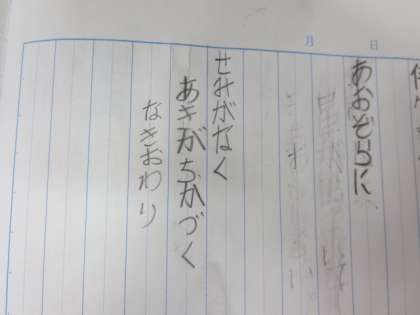 月 日
あおぞらに
せみがなく
あきがちかづく
なきおわり